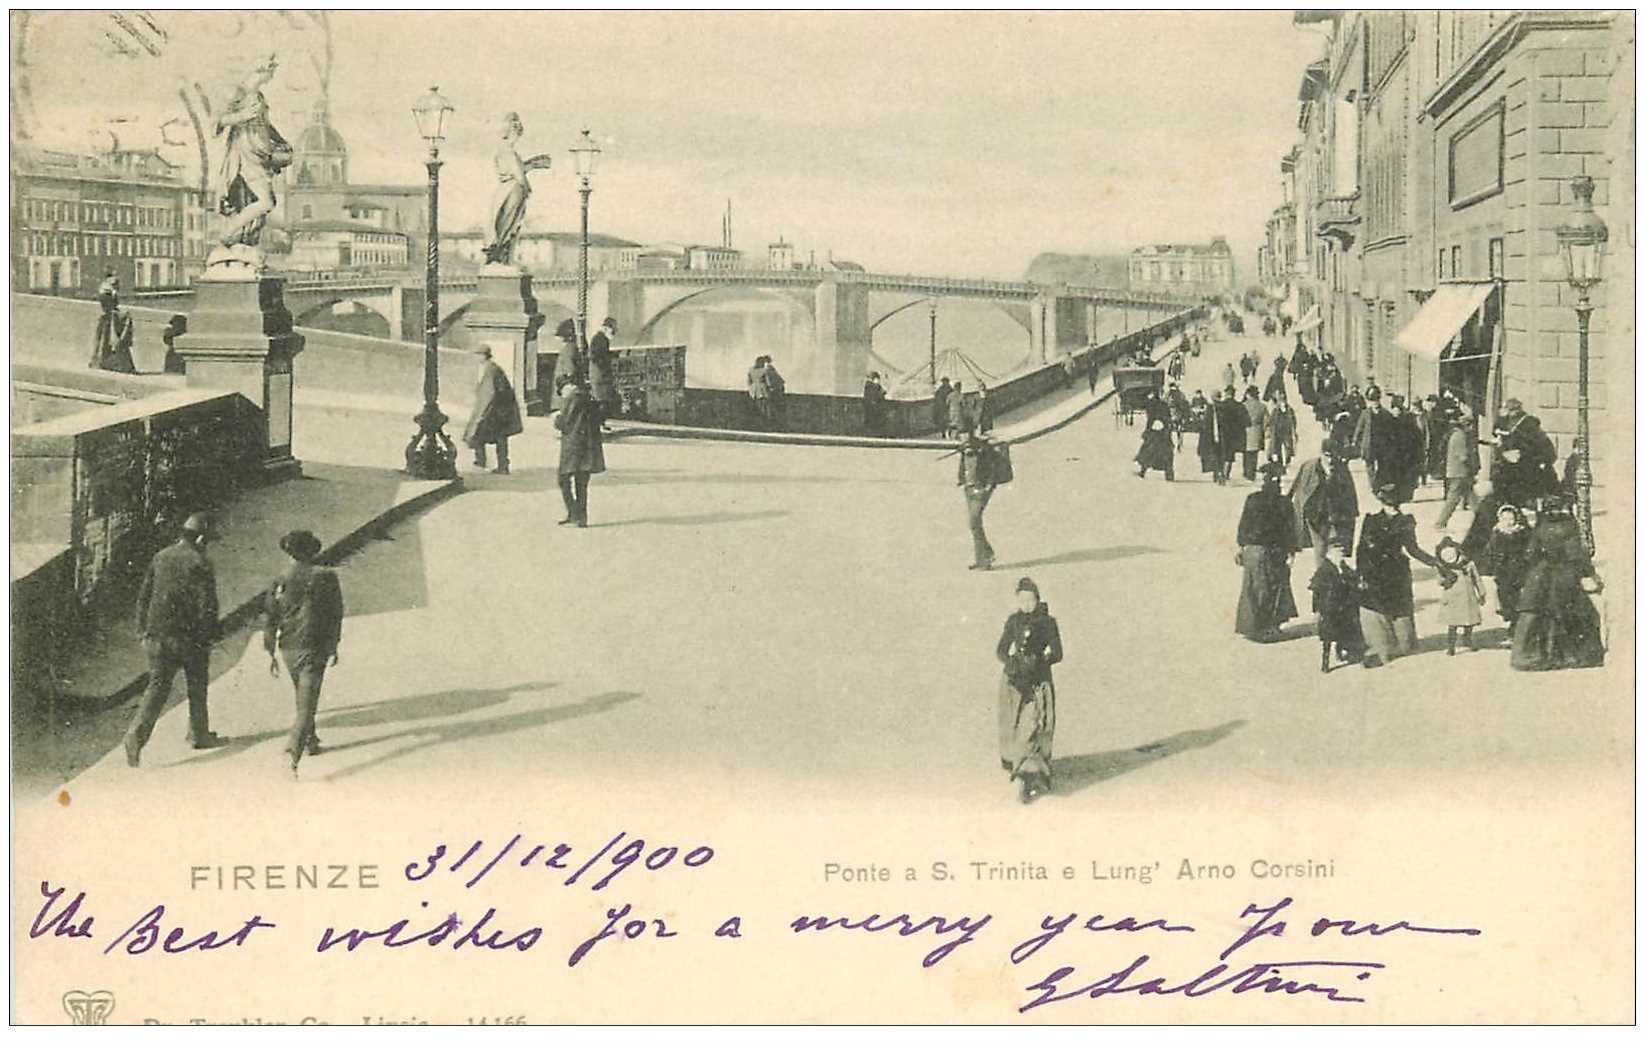 FIRENZE 31/12/900 Ponte a S. Trinita e Lung' Arno Corsini
The Best wishes for a merry year from
G Saltini
Dr. Trenkler Co., Lipsia. 14 166